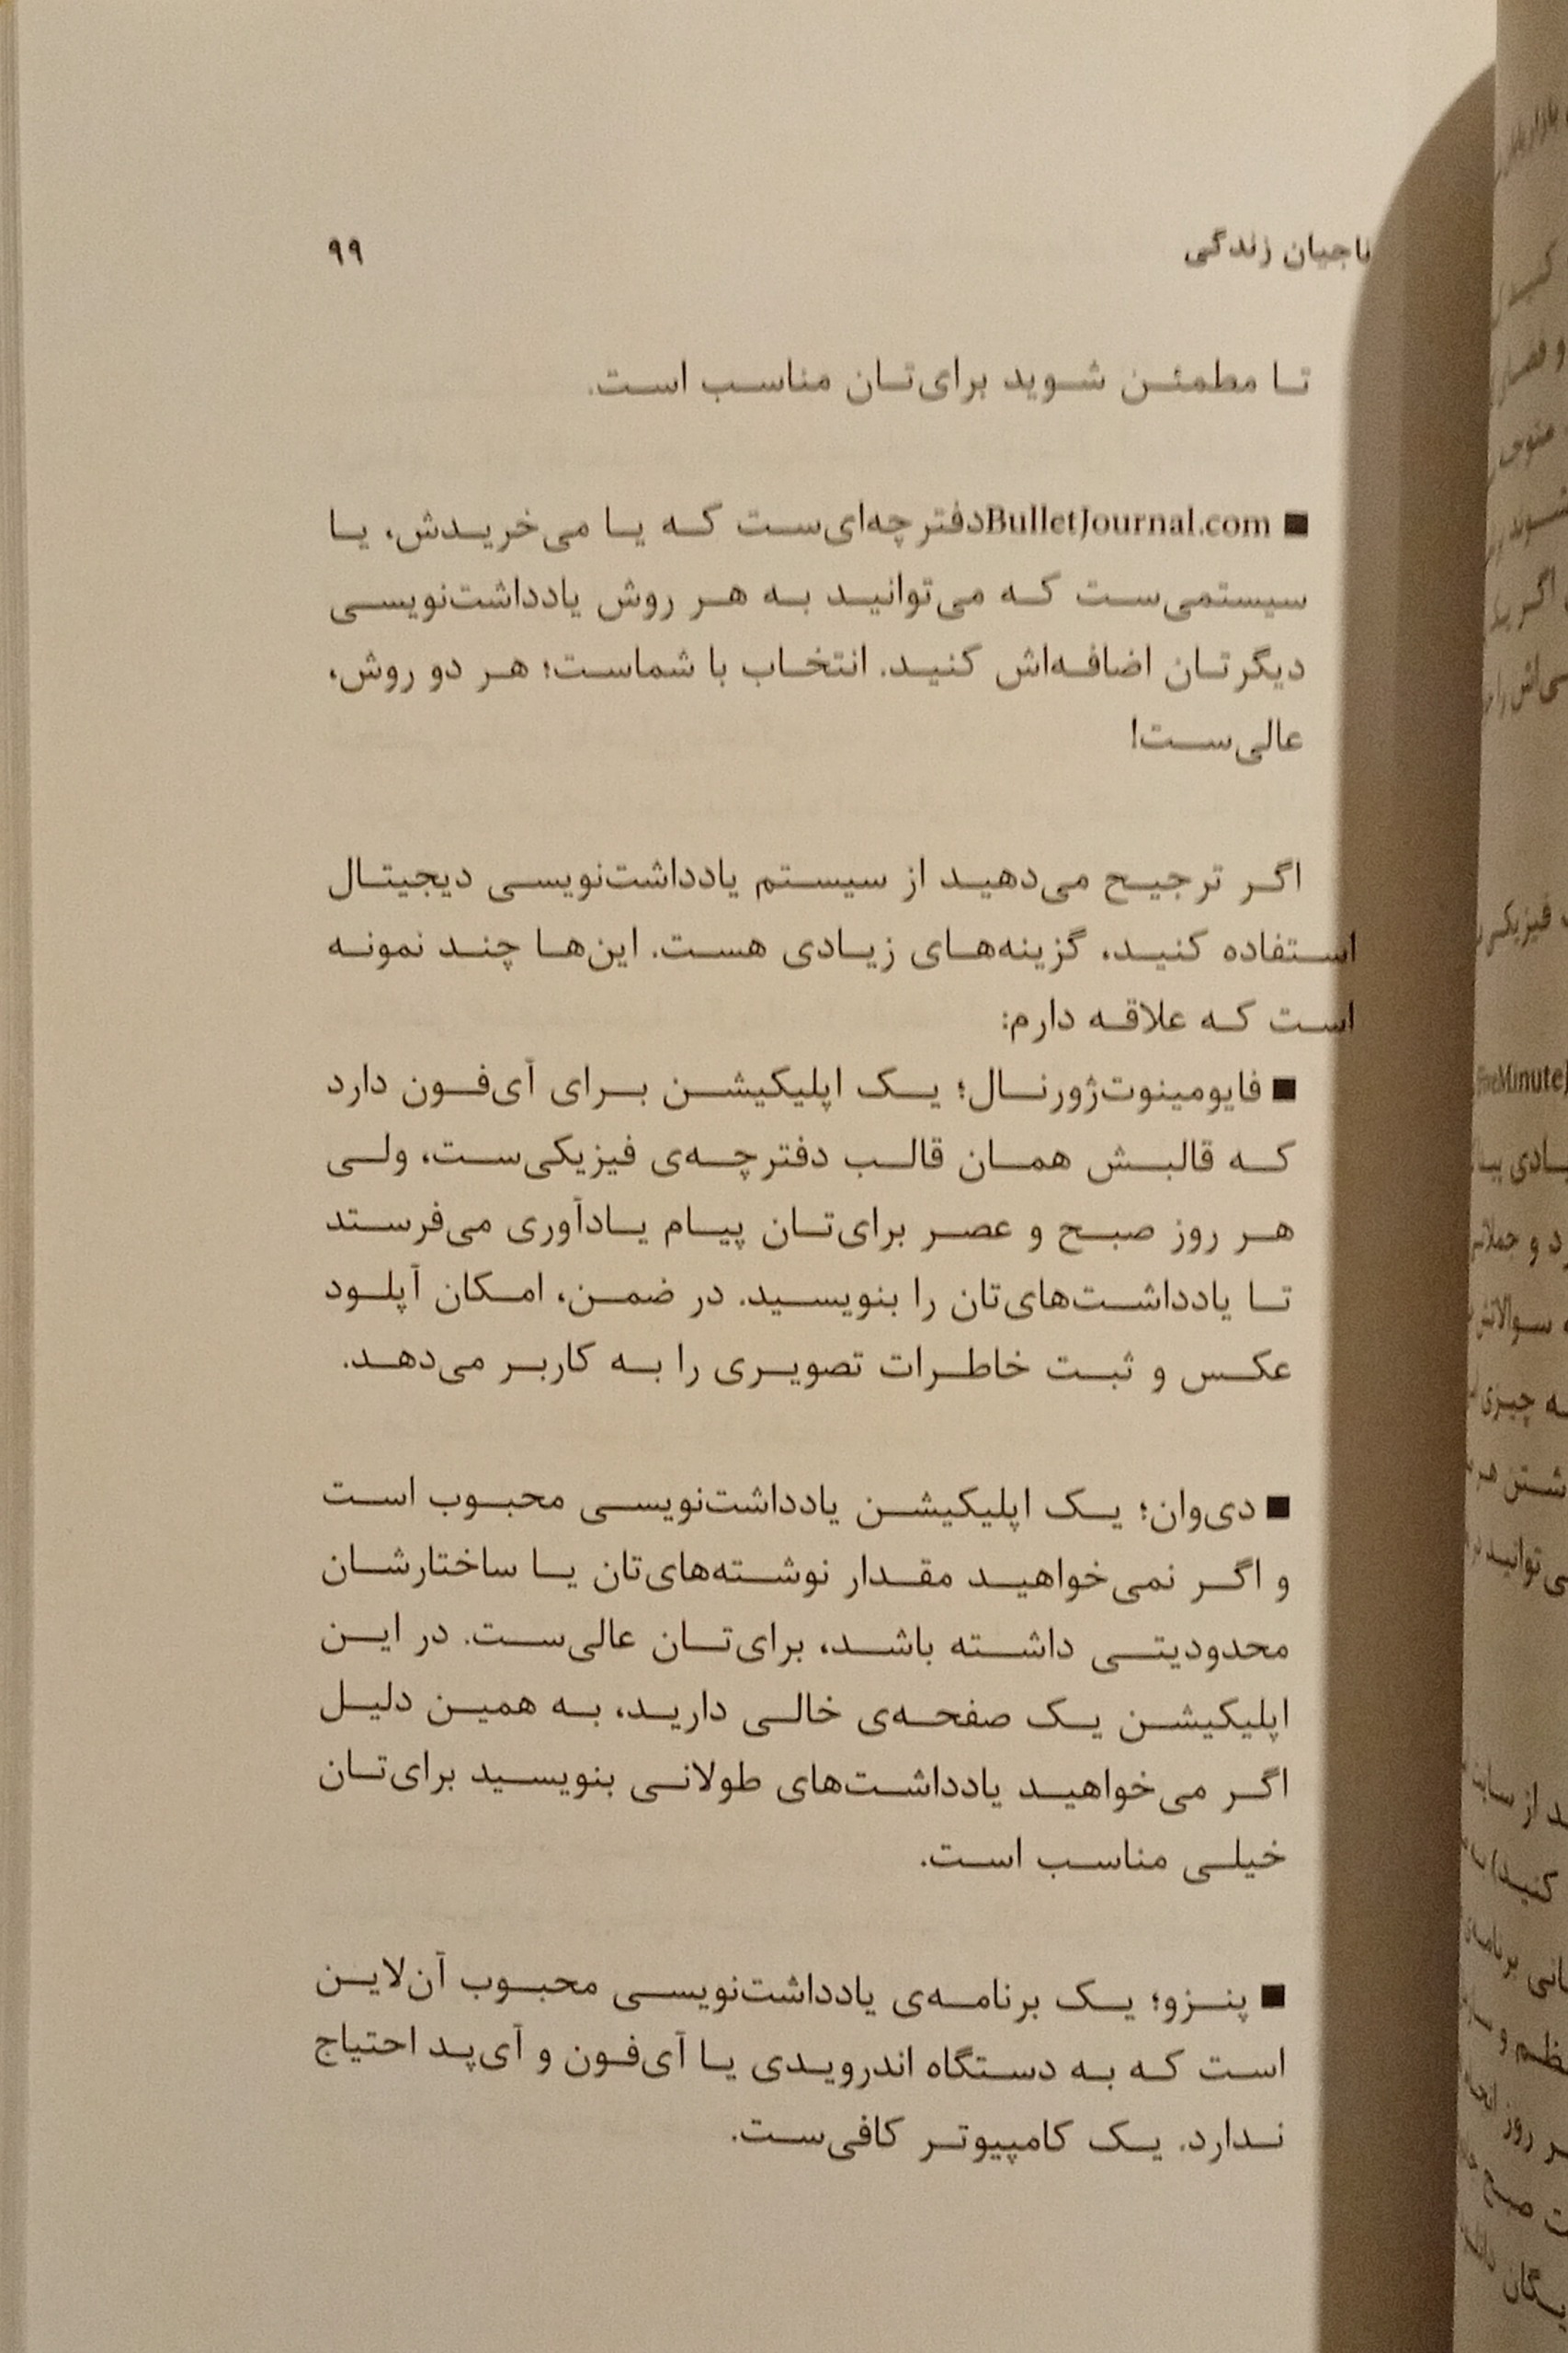 ناجیان زندگی
۹۹
تا مطمئن شوید برای‌تان مناسب است.
■ BulletJournal.comدفترچه‌ای‌ست که یا می‌خریدش، یا
سیستمی‌ست که می‌توانید به هر روش یادداشت‌نویسی
دیگرتان اضافه‌اش کنید. انتخاب با شماست؛ هر دو روش،
عالی‌ست!
اگر ترجیح می‌دهید از سیستم یادداشت‌نویسی دیجیتال
استفاده کنید، گزینه‌های زیادی هست. این‌ها چند نمونه
است که علاقه دارم:
■ فایومینوت‌ژورنال؛ یک اپلیکیشن برای آی‌فون دارد
که قالبش همان قالب دفترچه‌ی فیزیکی‌ست، ولی
هر روز صبح و عصر برای‌تان پیام یادآوری می‌فرستد
تا یادداشت‌های‌تان را بنویسید. در ضمن، امکان آپلود
عکس و ثبت خاطرات تصویری را به کاربر می‌دهد.
■ دی‌وان؛ یک اپلیکیشن یادداشت‌نویسی محبوب است
و اگر نمی‌خواهید مقدار نوشته‌های‌تان یا ساختارشان
محدودیتی داشته باشد، برای‌تان عالی‌ست. در این
اپلیکیشن یک صفحه‌ی خالی دارید، به همین دلیل
اگر می‌خواهید یادداشت‌های طولانی بنویسید برای‌تان
خیلی مناسب است.
■ پنزو؛ یک برنامه‌ی یادداشت‌نویسی محبوب آن‌لاین
است که به دستگاه اندرویدی یا آی‌فون و آی‌پد احتیاج
ندارد. یک کامپیوتر کافی‌ست.